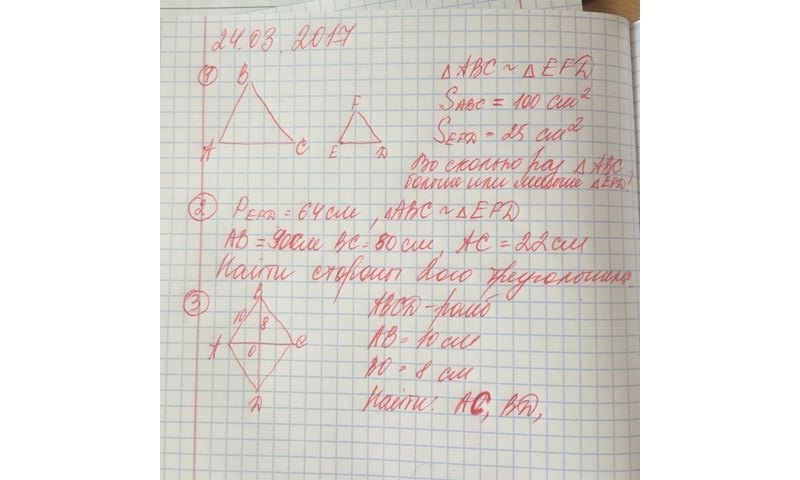 24.03.2017
1
B
A
C
F
E
D
△ABC ~ △EFD
SABC = 100 см²
SEFD = 25 см²
Во сколько раз △ABC
больше или меньше △EFD?
2. PEFD = 64 см, △ABC ~ △EFD
AB = 90 см BC = 80 см, AC = 22 см
Найти стороны 2ого треугольника.
3
B
10
8
A
O
C
D
ABCD - ромб
AB = 10 см
BO = 8 см
Найти: AC, BD,